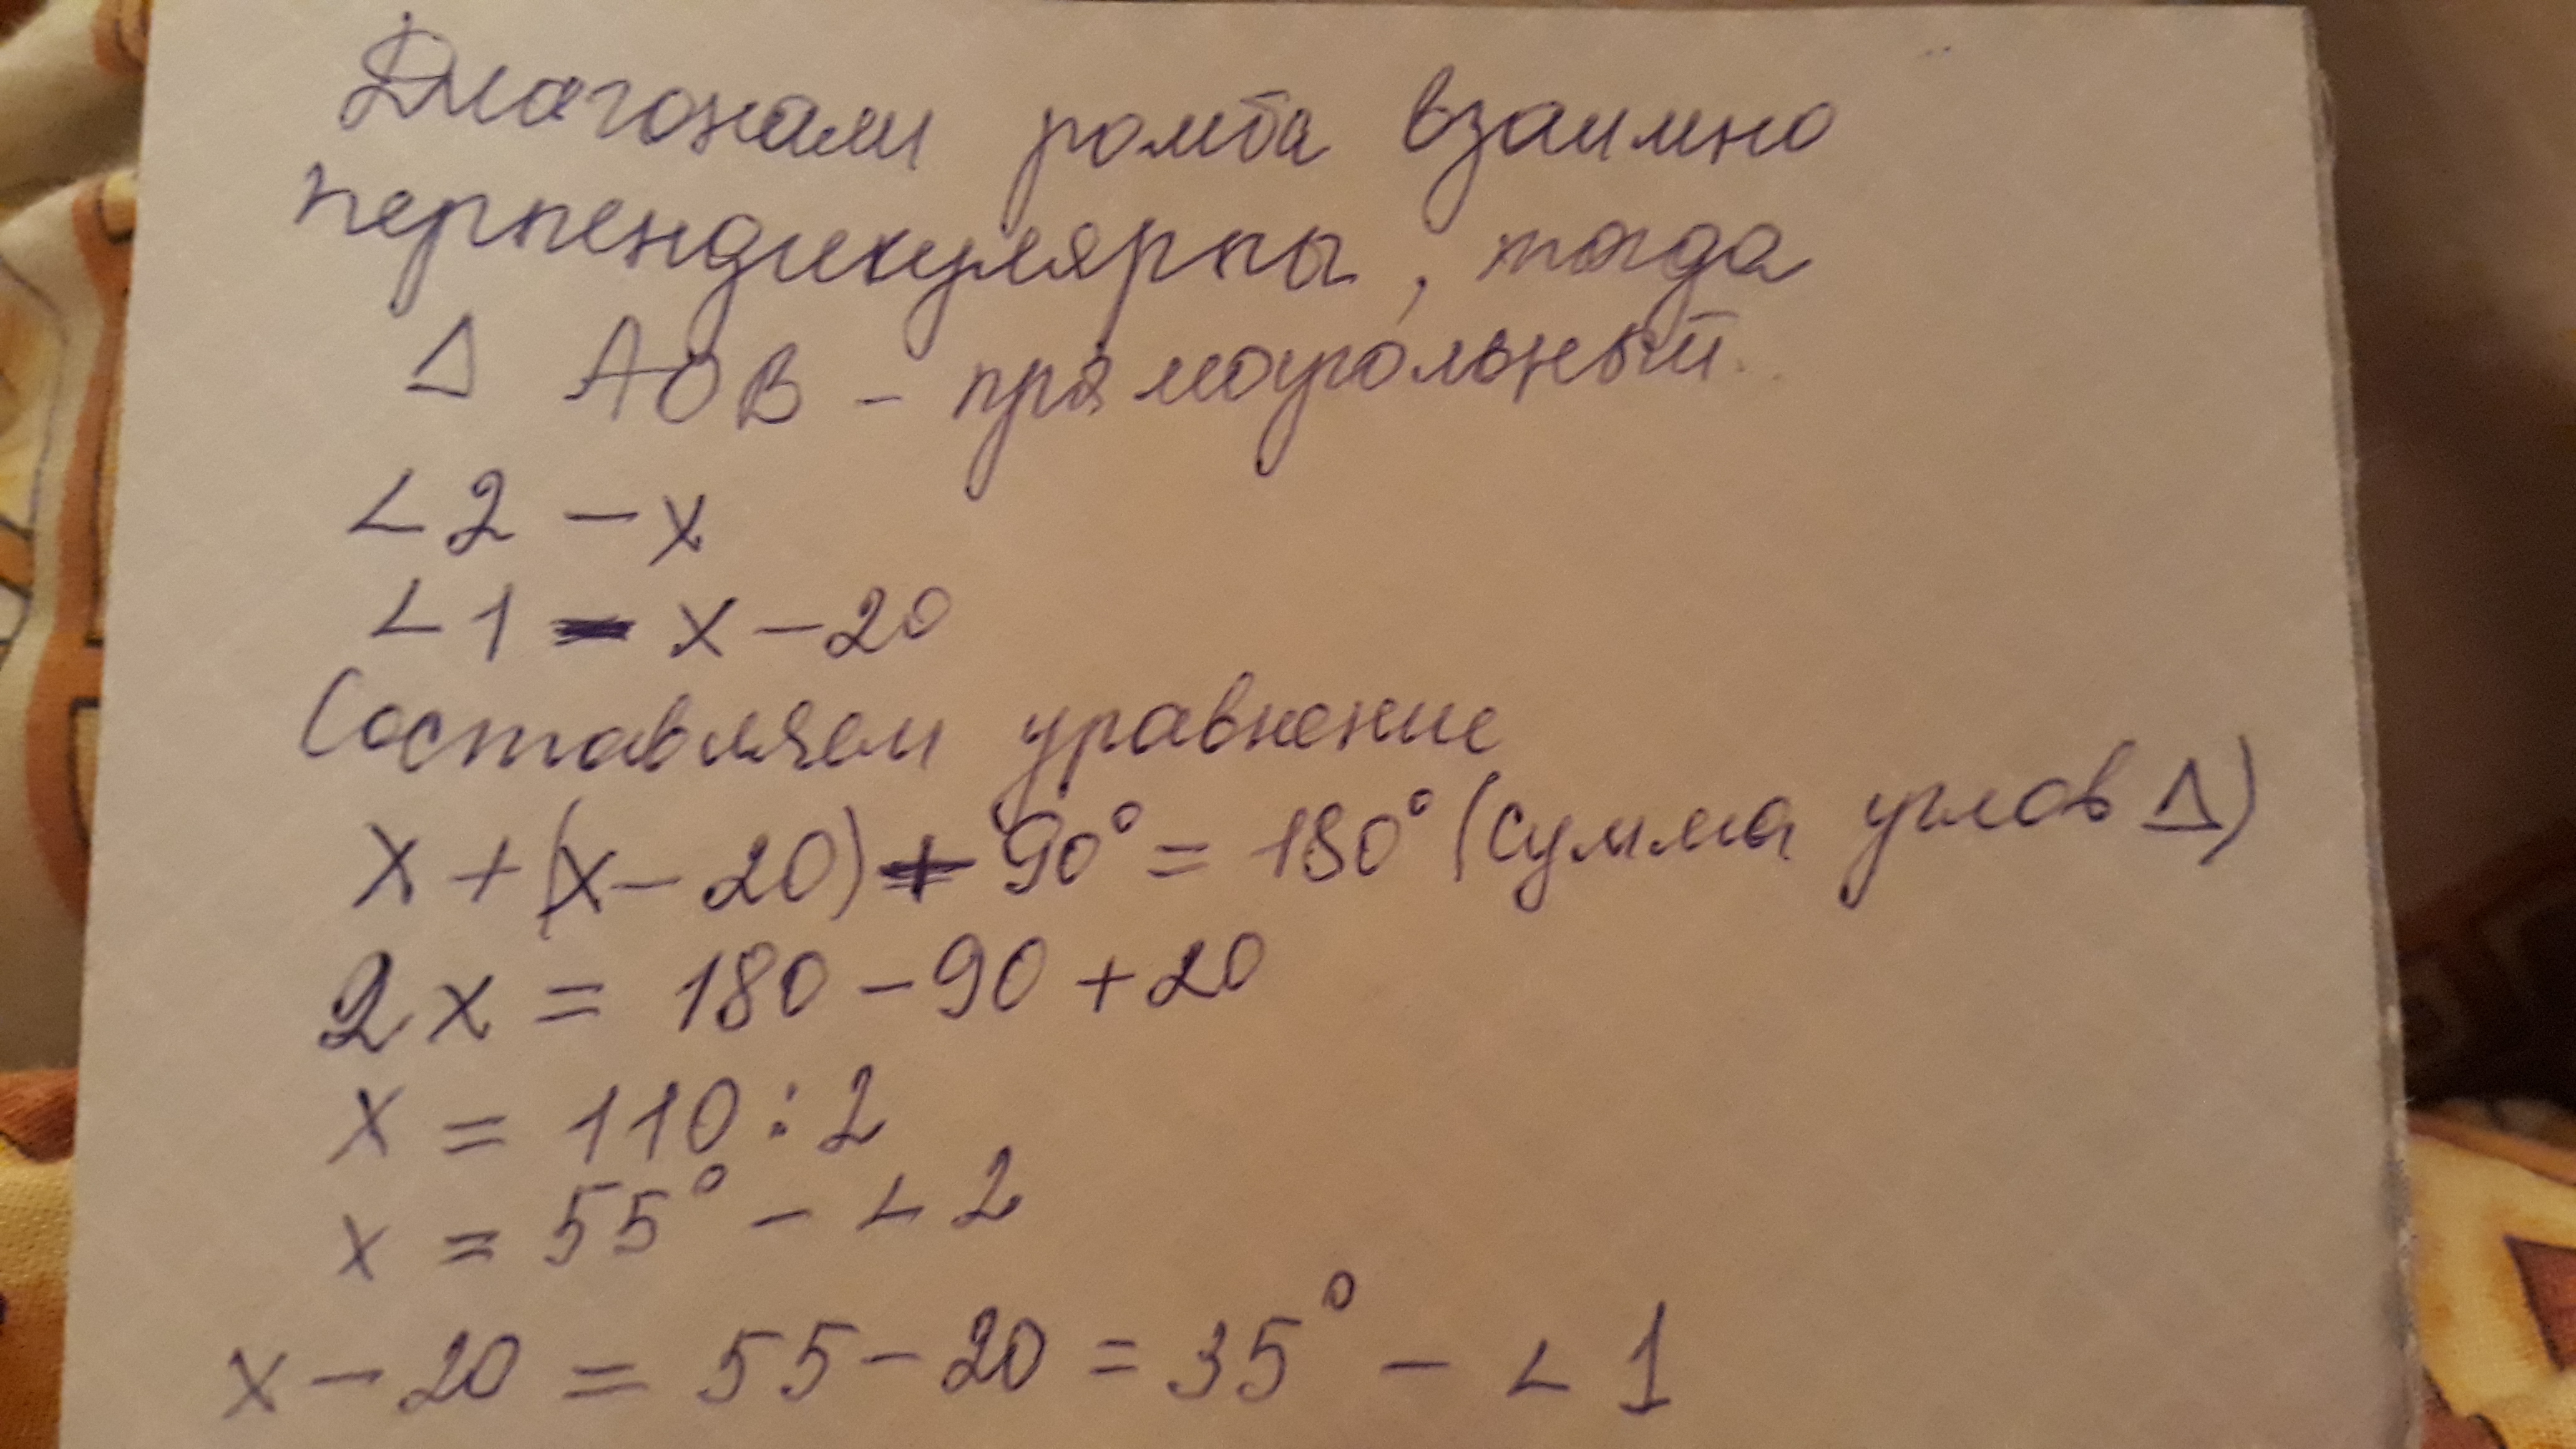 Диагонали ромба взаимно
перпендикулярны, тогда
Δ АОВ - прямоугольный.
∠2 - x
∠1 - x - 20
Составляем уравнение
x + (x - 20) + 90° = 180° (сумма углов Δ)
2x = 180 - 90 + 20
x = 110 : 2
x = 55° - ∠2
x - 20 = 55 - 20 = 35° - ∠1